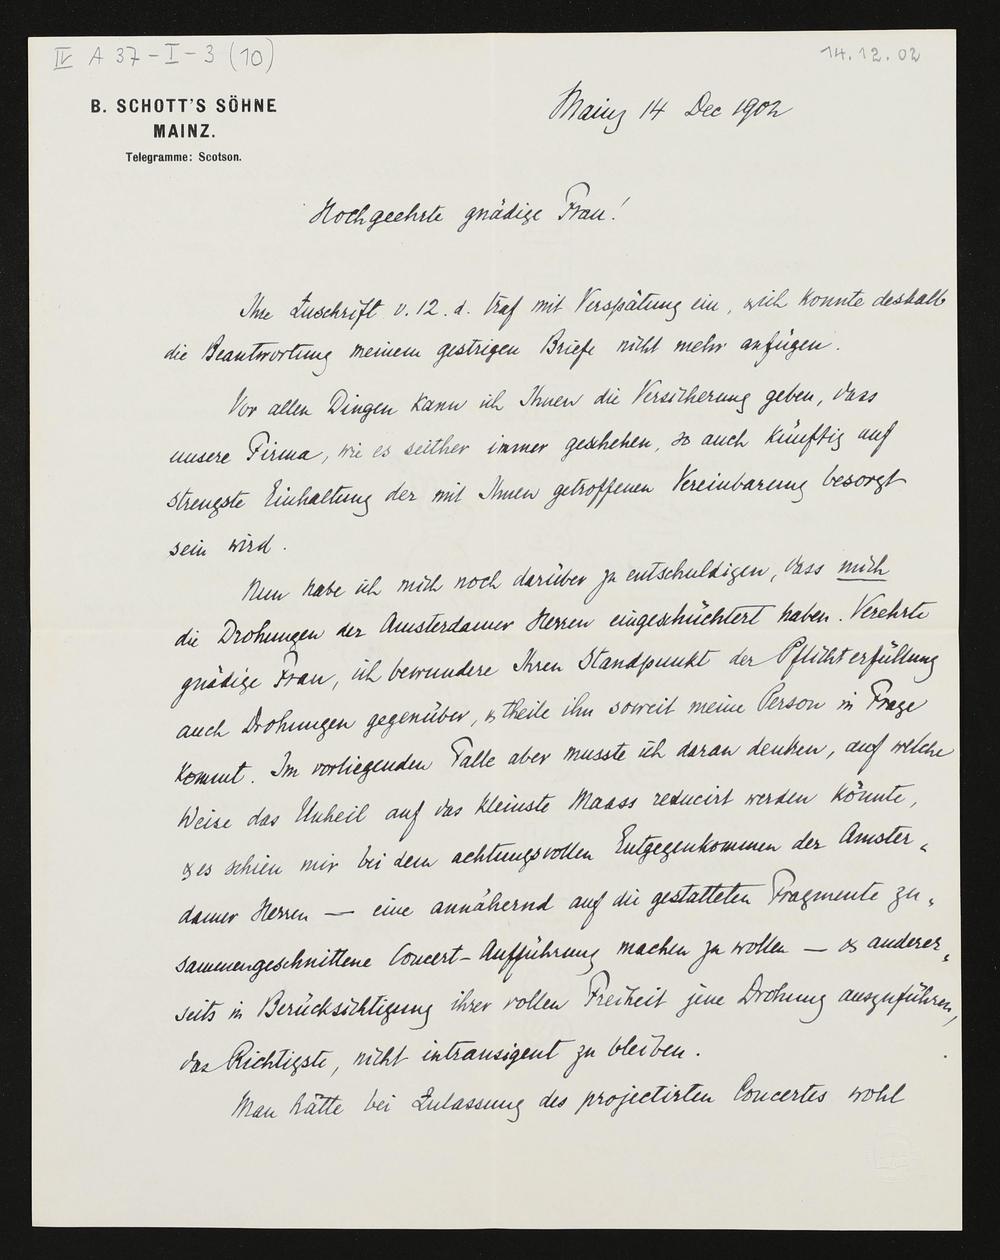 IV A 37-I-3 (10)
14.12.02
B. SCHOTT'S SÖHNE
MAINZ.
Telegramme: Scotson.
Mainz 14 Dec 1902
Hochgeehrte gnädige Frau!
Ihre Zuschrift v. 12. d. traf mit Verspätung ein, & ich konnte deshalb
die Beantwortung meinem gestrigen Briefe nicht mehr anfügen.
Vor allen Dingen kann ich Ihnen die Versicherung geben, dass
unsere Firma, wie es seither immer geschehen, so auch künftig auf
strengste Einhaltung der mit Ihnen getroffenen Vereinbarung besorgt
sein wird.
Nun habe ich mich noch darüber zu entschuldigen, dass mich
die Drohungen der Amsterdamer Herren eingeschüchtert haben. Verehrte
gnädige Frau, ich bewundere Ihren Standpunkt der Pflichterfüllung
auch Drohungen gegenüber, & theile ihn soweit meine Person in Frage
kommt. Im vorliegenden Falle aber musste ich daran denken, auf welche
Weise das Unheil auf das kleinste Maass reducirt werden könnte,
& es schien mir bei dem achtungsvollen Entgegenkommen der Amster„
damer Herren — eine annähernd auf die gestatteten Fragmente zu„
sammengeschnittene Concert-Aufführung machen zu wollen — & anderer„
seits in Berücksichtigung ihrer vollen Freiheit jene Drohung auszuführen,
das Richtigste, nicht intransigent zu bleiben.
Man hätte bei Zulassung des projectirten Concertes wohl